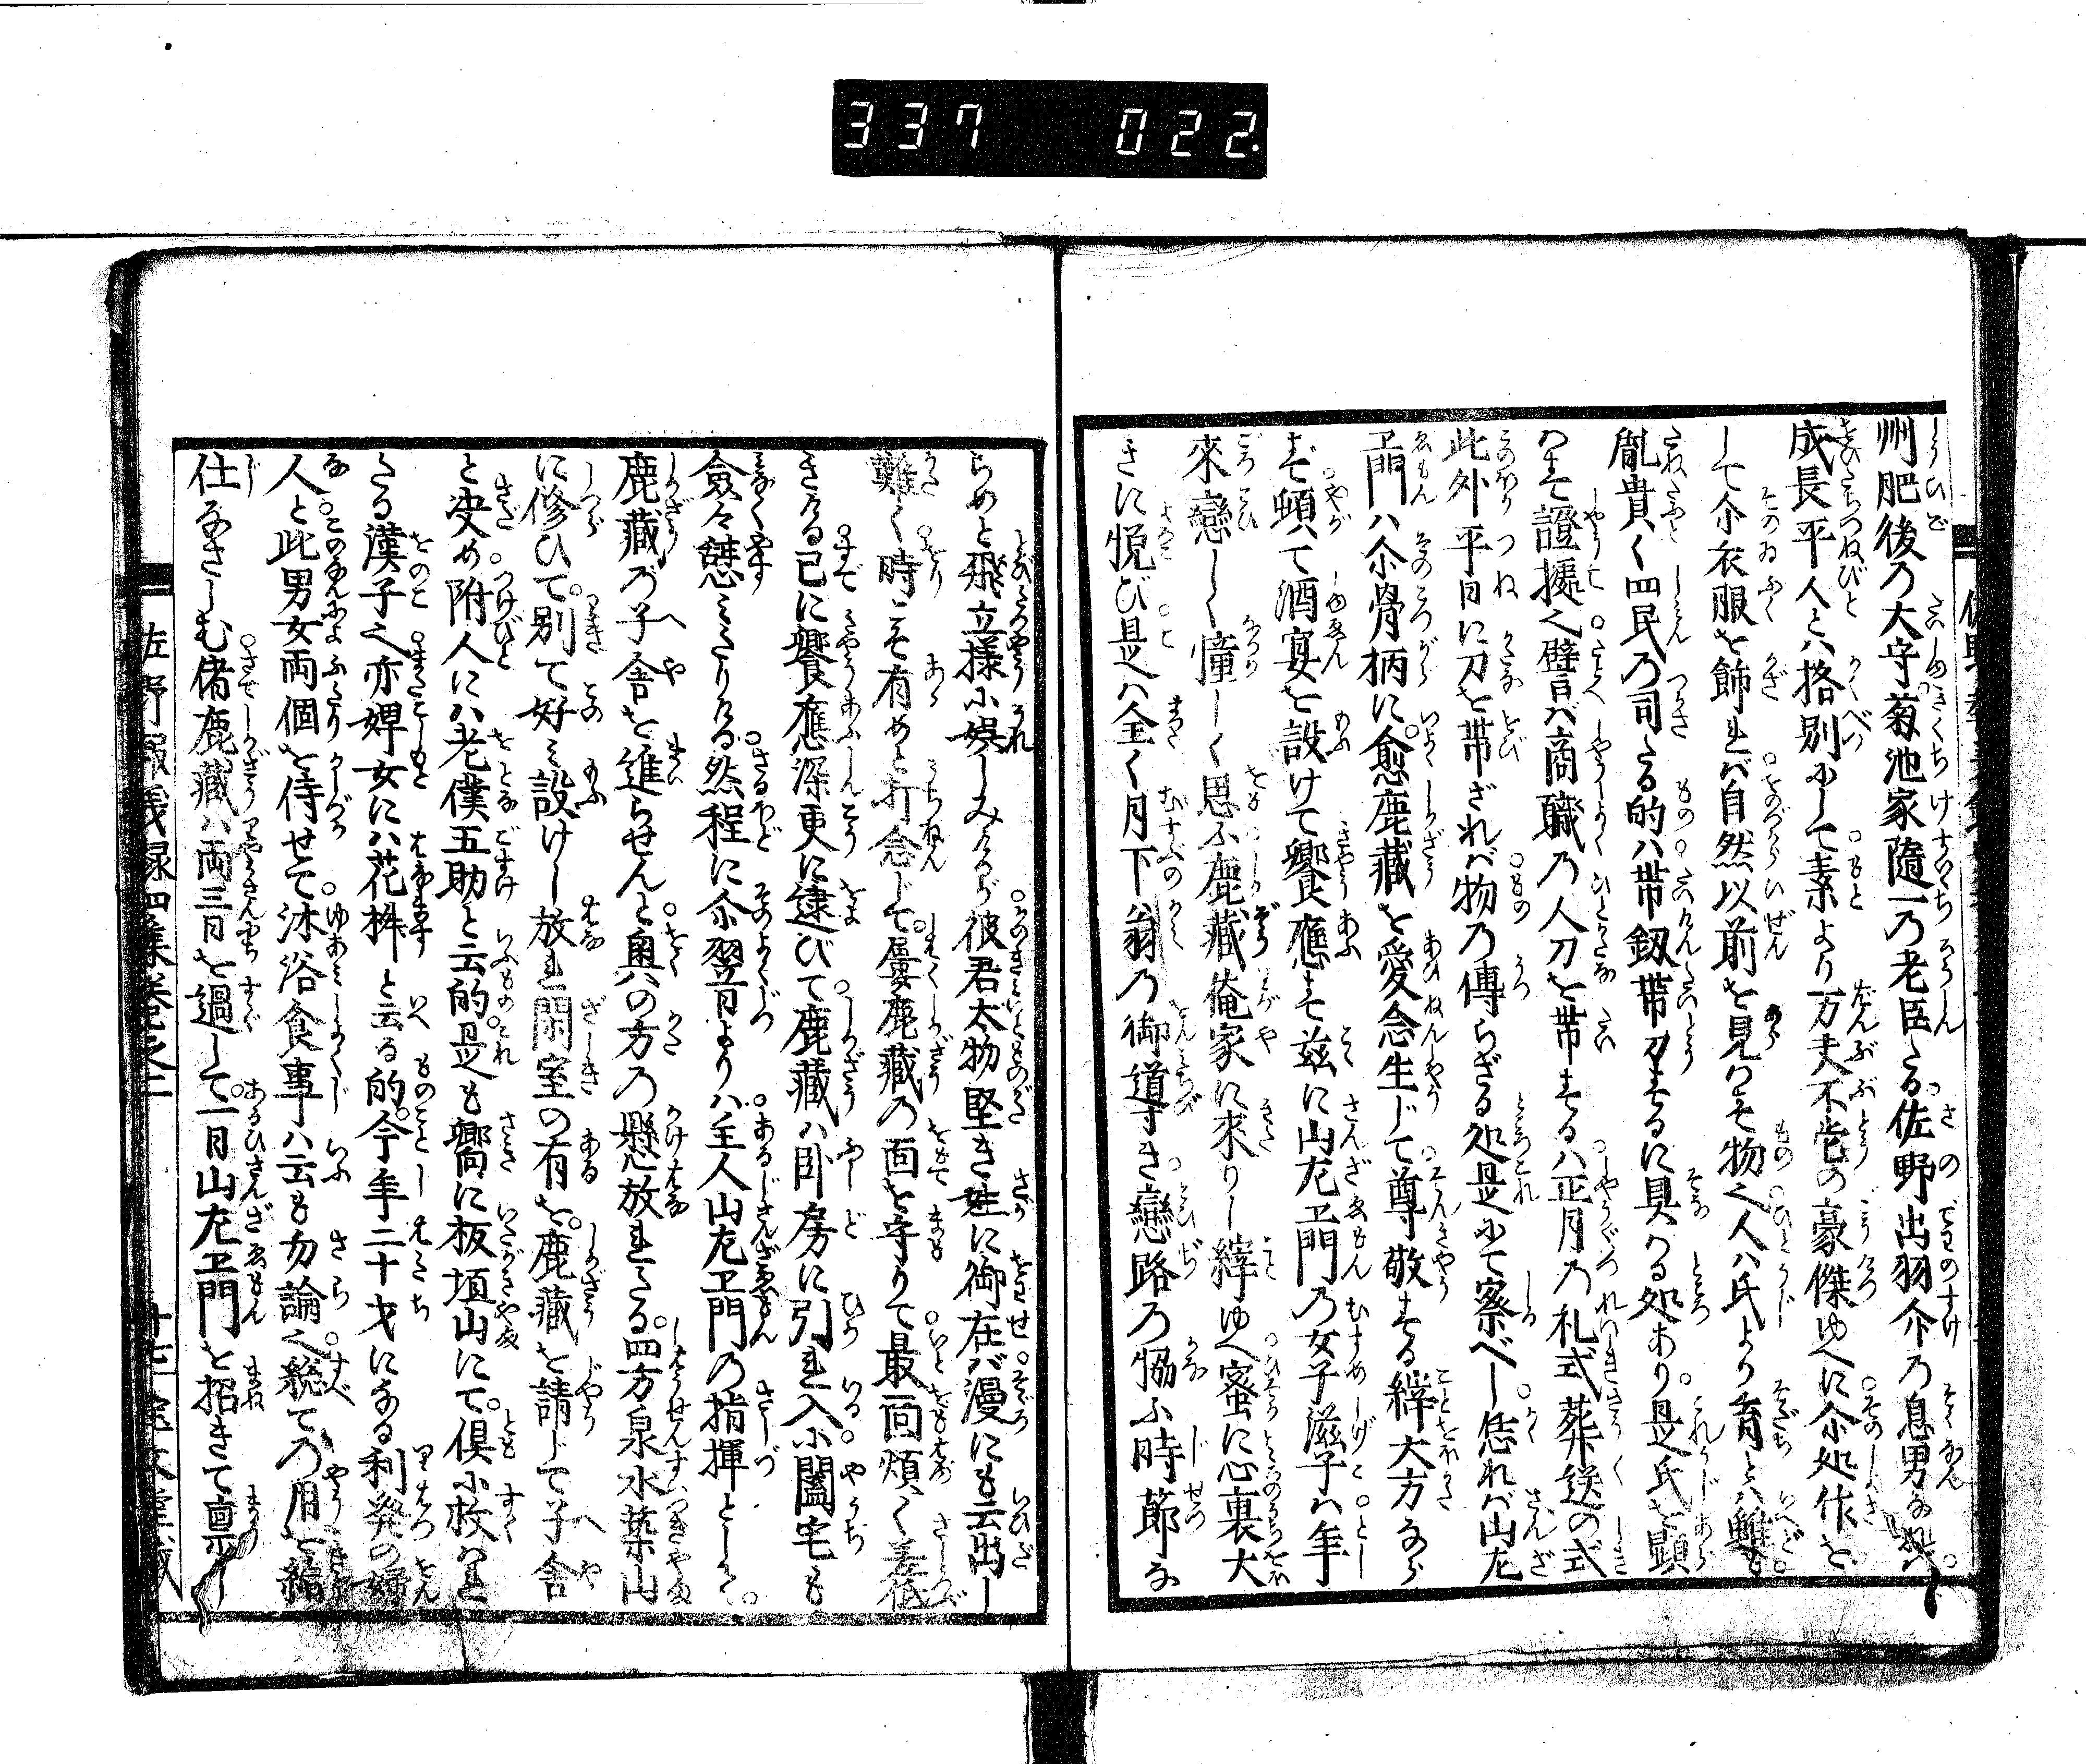 337 022.
州肥後の大守菊池家随一の老臣たる佐野出羽介の息男なれバ
成長平人とハ格別にして素より万夫不当の豪傑ゆへに尓処作を
して尓衣服を飾れバ自然以前を見らはさず物之人ハ氏より育とハ雖も
胤貴く四民の司たる的ハ帯釼帯刀するに具はる処あり是氏を顕
はす證拠之譬バ商職の人刀を帯するハ正月の礼式葬送の式
此外平日に刀を帯ざれバ物の傳らざる処是にて察べし恁れバ山左
エ門ハ尓骨柄に愈鹿藏を愛念生じて尊敬する縡大方なら
ず頓て酒宴を設けて饗應す茲に山左エ門の女子滋子ハ年
來戀しく憧しく思ふ鹿藏俺家に來りし縡ゆへ蜜に心裏大
きに悦び是ハ全く月下翁の御道すき戀路の恊ふ時節な
らめと飛立様に娯しみたるが彼君太物堅き姓に御在バ漫にも云出し
難く時こそ有めと打念じて屢鹿藏の面を守りて最面頬く養花
きたる已に饗應深更に逮びて鹿藏ハ卧房に引れ入に闔宅も
僉々憩みたりける然程に尓翌日よりハ主人山左エ門の指揮として
鹿藏の子舎を進らせんと奥の方の懸放れたる四方泉水築山
に修ひて別て好み設けし放れ閑室の有を鹿藏を請じて子舎
と决め附人にハ老僕五助と云的是も嚮に板垣山にて倶に救はれ
たる漢子之亦婢女にハ花桝と云る的今年二十才になる利発の婦
人と此男女両個を侍せて沐浴食事ハ云も勿論之總ての用を給
仕なさしむ偖鹿藏ハ両三日を過して一日山左エ門を招きて稟し
佐野報義録四集巻之二